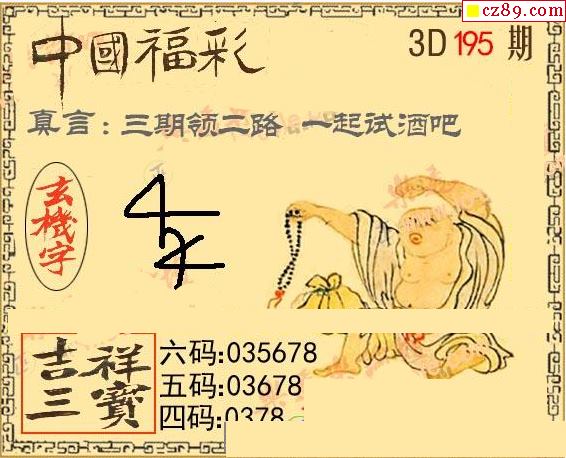 cz89.com
中國福彩
3D 195 期
真言：三期领二路 一起试酒吧
玄機字
吉祥三寶
六码:035678
五码:03678
四码:0378